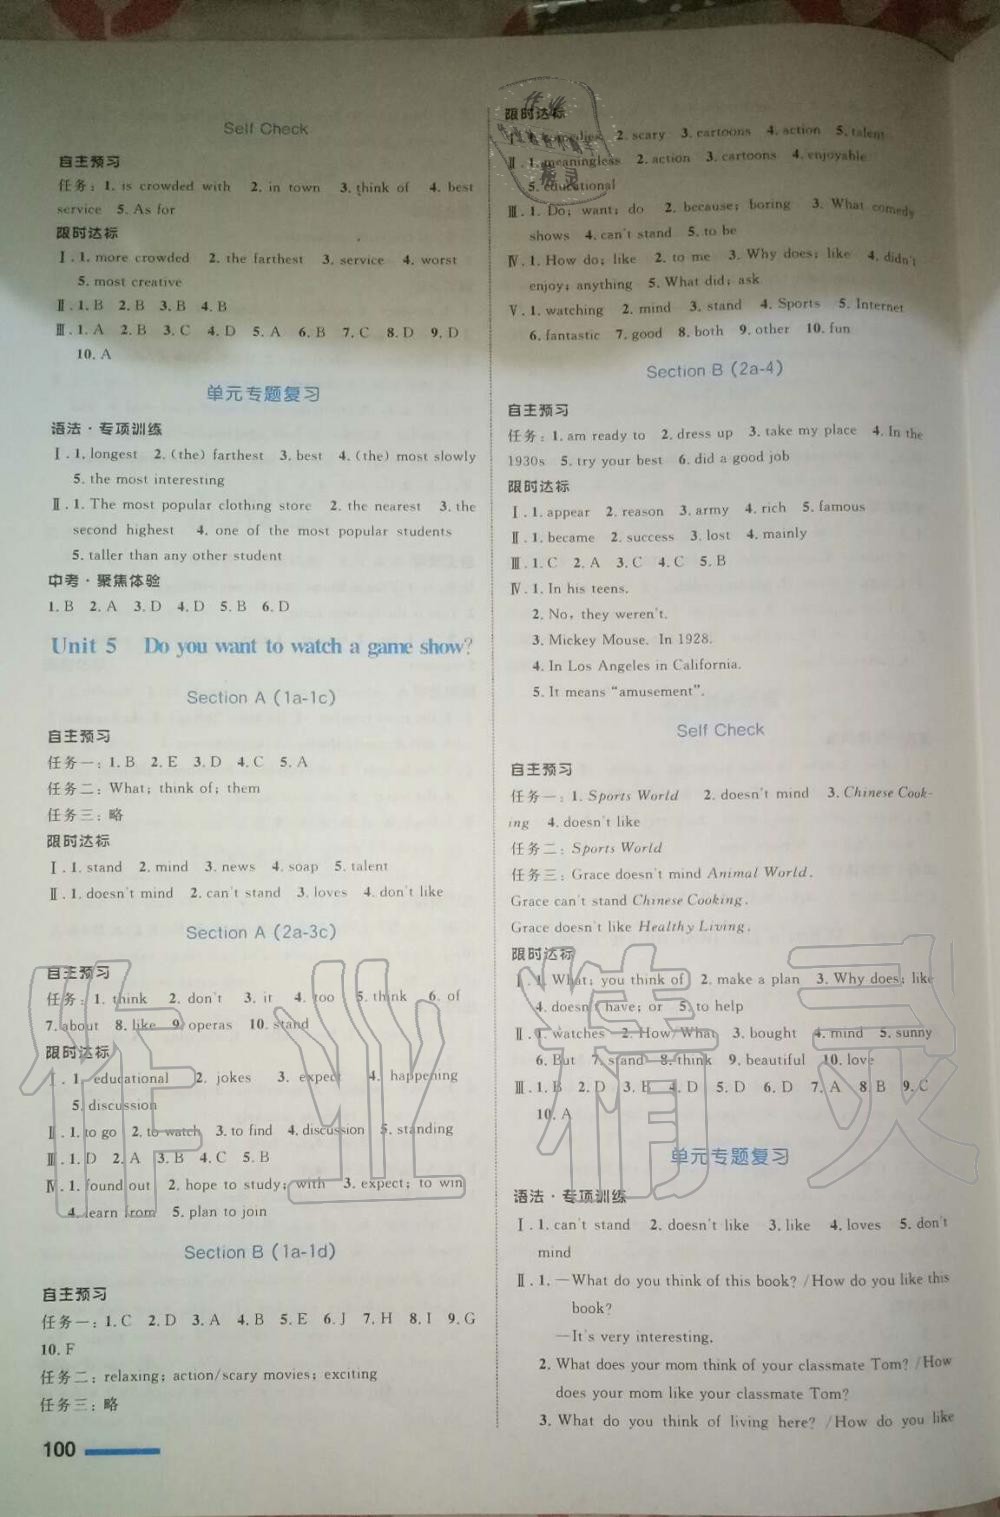 Self Check
自主预习
任务：1. is crowded with 2. in town 3. think of 4. best
service 5. As for
限时达标
Ⅰ. 1. more crowded 2. the farthest 3. service 4. worst
5. most creative
Ⅱ. 1. B 2. B 3. B 4. B
Ⅲ. 1. A 2. B 3. C 4. D 5. A 6. B 7. C 8. D 9. D
10. A
单元专题复习
语法·专项训练
Ⅰ. 1. longest 2. (the) farthest 3. best 4. (the) most slowly
5. the most interesting
Ⅱ. 1. The most popular clothing store 2. the nearest 3. the
second highest 4. one of the most popular students
5. taller than any other student
中考·聚焦体验
1. B 2. A 3. D 4. D 5. B 6. D
Unit 5 Do you want to watch a game show?
Section A (1a-1c)
自主预习
任务一：1. B 2. E 3. D 4. C 5. A
任务二：What; think of; them
任务三：略
限时达标
Ⅰ. 1. stand 2. mind 3. news 4. soap 5. talent
Ⅱ. 1. doesn't mind 2. can't stand 3. loves 4. don't like
Section A (2a-3c)
自主预习
任务：1. think 2. don't 3. it 4. too 5. think 6. of
7. about 8. like 9. operas 10. stand
限时达标
Ⅰ. 1. educational 2. jokes 3. expect 4. happening
5. discussion
Ⅱ. 1. to go 2. to watch 3. to find 4. discussion 5. standing
Ⅲ. 1. D 2. A 3. B 4. C 5. B
Ⅳ. 1. found out 2. hope to study; with 3. expect; to win
4. learn from 5. plan to join
Section B (1a-1d)
自主预习
任务一：1. C 2. D 3. A 4. B 5. E 6. J 7. H 8. I 9. G
10. F
任务二：relaxing; action/scary movies; exciting
任务三：略
100
限时达标
Ⅰ. 1. comedies 2. scary 3. cartoons 4. action 5. talent
Ⅱ. 1. meaningless 2. action 3. cartoons 4. enjoyable
5. educational
Ⅲ. 1. Do; want; do 2. because; boring 3. What comedy
shows 4. can't stand 5. to be
Ⅳ. 1. How do; like 2. to me 3. Why does; like 4. didn't
enjoy; anything 5. What did; ask
Ⅴ. 1. watching 2. mind 3. stand 4. Sports 5. Internet
6. fantastic 7. good 8. both 9. other 10. fun
Section B (2a-4)
自主预习
任务：1. am ready to 2. dress up 3. take my place 4. In the
1930s 5. try your best 6. did a good job
限时达标
Ⅰ. 1. appear 2. reason 3. army 4. rich 5. famous
Ⅱ. 1. became 2. success 3. lost 4. mainly
Ⅲ. 1. C 2. A 3. C 4. C 5. B
Ⅳ. 1. In his teens.
2. No, they weren't.
3. Mickey Mouse. In 1928.
4. In Los Angeles in California.
5. It means "amusement".
Self Check
自主预习
任务一：1. Sports World 2. doesn't mind 3. Chinese Cook-
ing 4. doesn't like
任务二：Sports World
任务三：Grace doesn't mind Animal World.
Grace can't stand Chinese Cooking.
Grace doesn't like Healthy Living.
限时达标
Ⅰ. 1. What; you think of 2. make a plan 3. Why does; like
4. doesn't have; or 5. to help
Ⅱ. 1. watches 2. How/What 3. bought 4. mind 5. sunny
6. But 7. stand 8. think 9. beautiful 10. love
Ⅲ. 1. B 2. D 3. B 4. D 5. D 6. D 7. A 8. B 9. C
10. A
单元专题复习
语法·专项训练
Ⅰ. 1. can't stand 2. doesn't like 3. like 4. loves 5. don't
mind
Ⅱ. 1. —What do you think of this book? /How do you like this
book?
—It's very interesting.
2. What does your mom think of your classmate Tom? /How
does your mom like your classmate Tom?
3. What do you think of living here? /How do you like
作业精灵